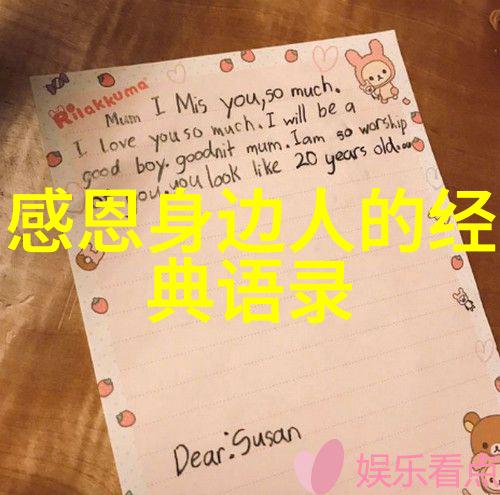 Rilakkuma
Mum I Mis you,so much.
I love you so much. I will be a
good boy. goodnit mum. I am so worship
you. you look like 20 years old.
感恩身边人的经
典语录
Dear: Susan
娱乐看点